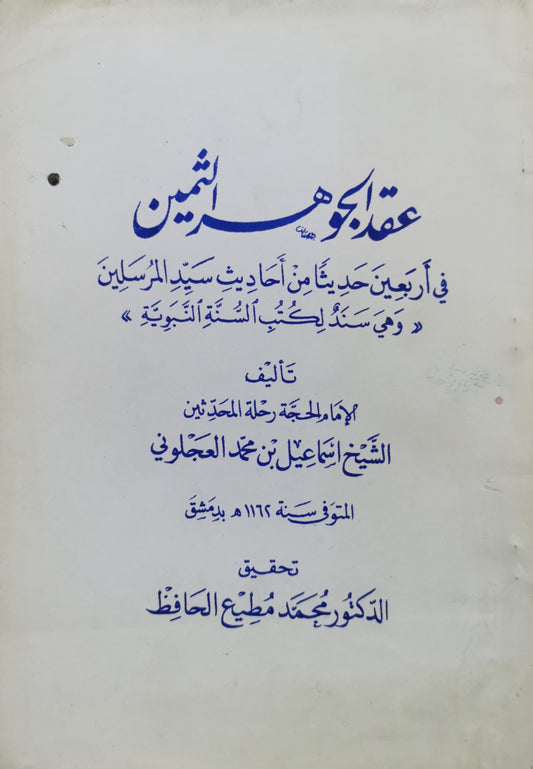 عقد الجوهر الثمين
في أَربَعِينَ حَدِيثًا مِنْ أَحَادِيثِ سَيِّدِ المُرسَلِينَ
« وَهِيَ سَنَدٌ لِكُتُبِ ٱلسُّنَّةِ ٱلنَّبَوِيَّةِ »
تَأليف
الإمام الحجّة رحلة المحَدِّثين
الشَّيْخ اسمَاعيل بن محمّد العَجْلوني
المتوَفى سَنة ١١٦٢ هـ بدِمَشِقَ
تحقيق
الدّكتور مُحَمَّد مُطِيع الحَافِظ